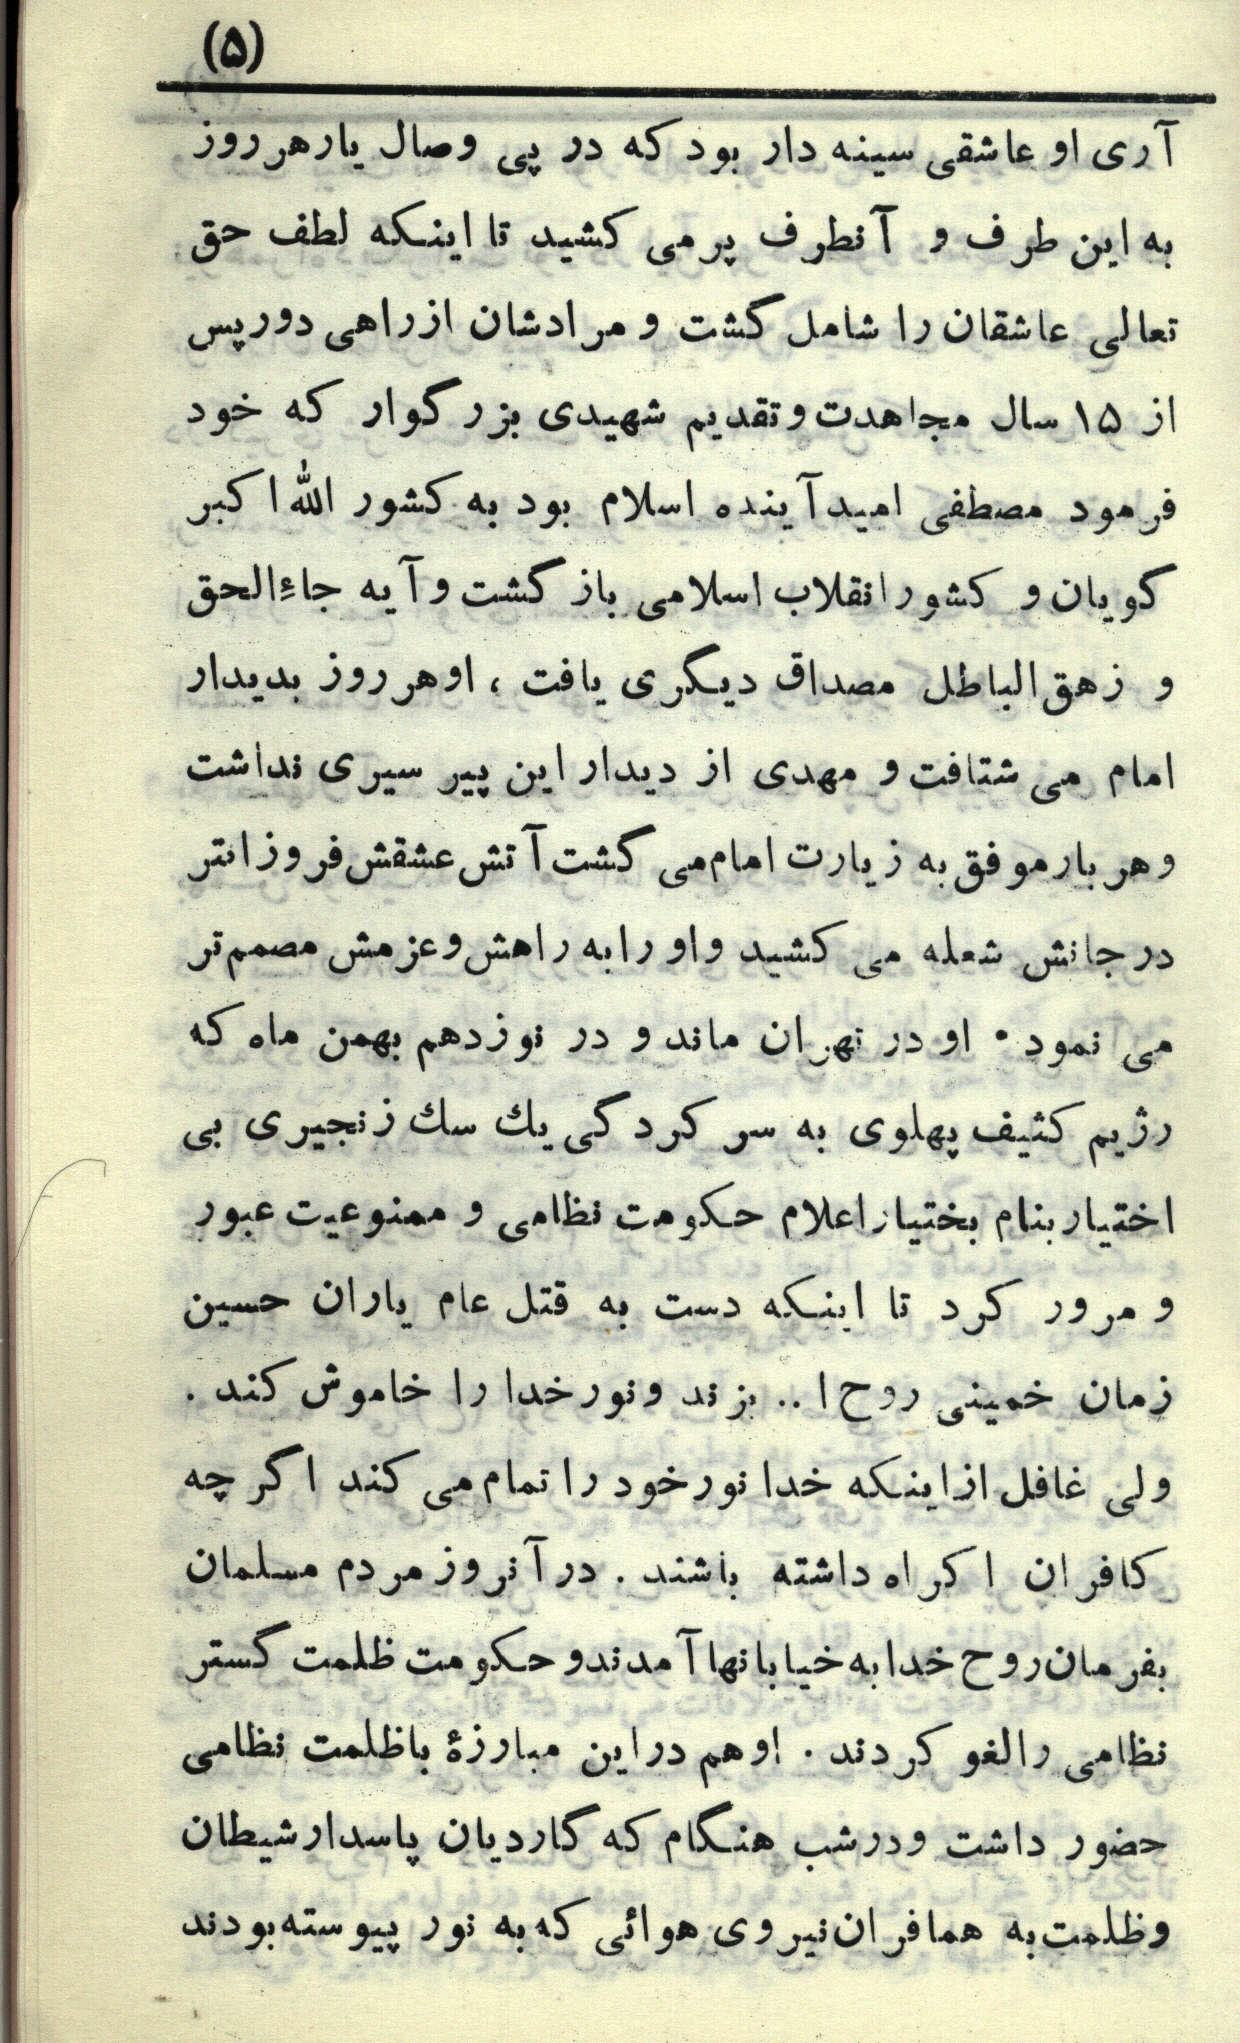 (۵)
آری او عاشقی سینه دار بود که در پی وصال یار هر روز
به این طرف و آنطرف پر می کشید تا اینکه لطف حق
تعالی عاشقان را شامل گشت و مرادشان از راهی دور پس
از ۱۵ سال مجاهدت و تقدیم شهیدی بزرگوار که خود
فرمود مصطفی امید آینده اسلام بود به کشور الله اکبر
گویان و کشور انقلاب اسلامی باز گشت و آیه جاءالحق
و زهق الباطل مصداق دیگری یافت ، او هر روز بدیدار
امام می شتافت و مهدی از دیدار این پیر سیری نداشت
و هر بار موفق به زیارت امام می گشت آتش عشقش فروزانتر
در جانش شعله می کشید و او را به راهش و عزمش مصمم تر
می نمود ۰ او در تهران ماند و در نوزدهم بهمن ماه که
رژیم کثیف پهلوی به سر کردگی یك سك زنجیری بی
اختیار بنام بختیار اعلام حکومت نظامی و ممنوعیت عبور
و مرور کرد تا اینکه دست به قتل عام یاران حسین
زمان خمینی روح ا .. بزند و نور خدا را خاموش کند .
ولی غافل از اینکه خدا نور خود را تمام می کند اگر چه
کافران اکراه داشته باشند . در آنروز مردم مسلمان
بفرمان روح خدا به خیابانها آمدند و حکومت ظلمت گستر
نظامی را لغو کردند . او هم در این مبارزهٔ با ظلمت نظامی
حضور داشت و در شب هنگام که گاردیان پاسدار شیطان
و ظلمت به همافران نیروی هوائی که به نور پیوسته بودند